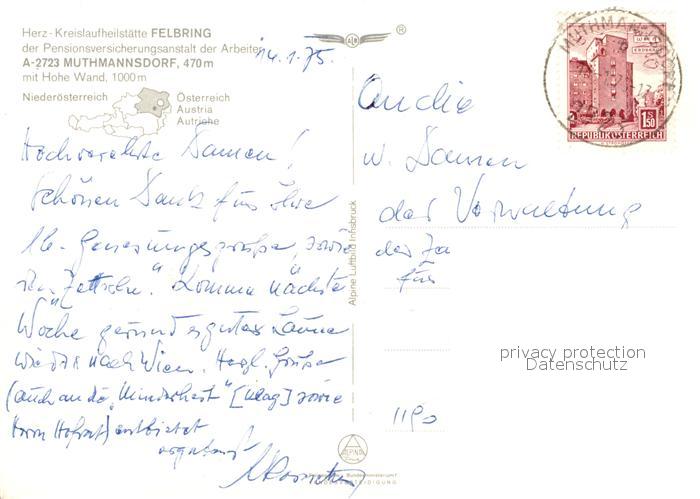 Herz-Kreislaufheilstätte FELBRING
der Pensionsversicherungsanstalt der Arbeiter
A-2723 MUTHMANNSDORF, 470 m
mit Hohe Wand, 1000 m
Niederösterreich
Österreich
Austria
Autriche
14.1.75.
Hochverehrte Damen!
Schönen Dank für Ihre
lb. Genesungsgrüße, sowie
Komme nächste
Woche gesund u. guter Laune
wieder nach Wien. Herzl. Grüße
(auch an die "Minderheit" sowie
Herrn Hofrat) entbietet
ergebenst
An die
w. Damen
der Verwaltung
der
für
1190
Alpine Luftbild Innsbruck
ALPINE
REPUBLIK ÖSTERREICH
1.50
MUTHMANNSDORF
privacy protection
Datenschutz